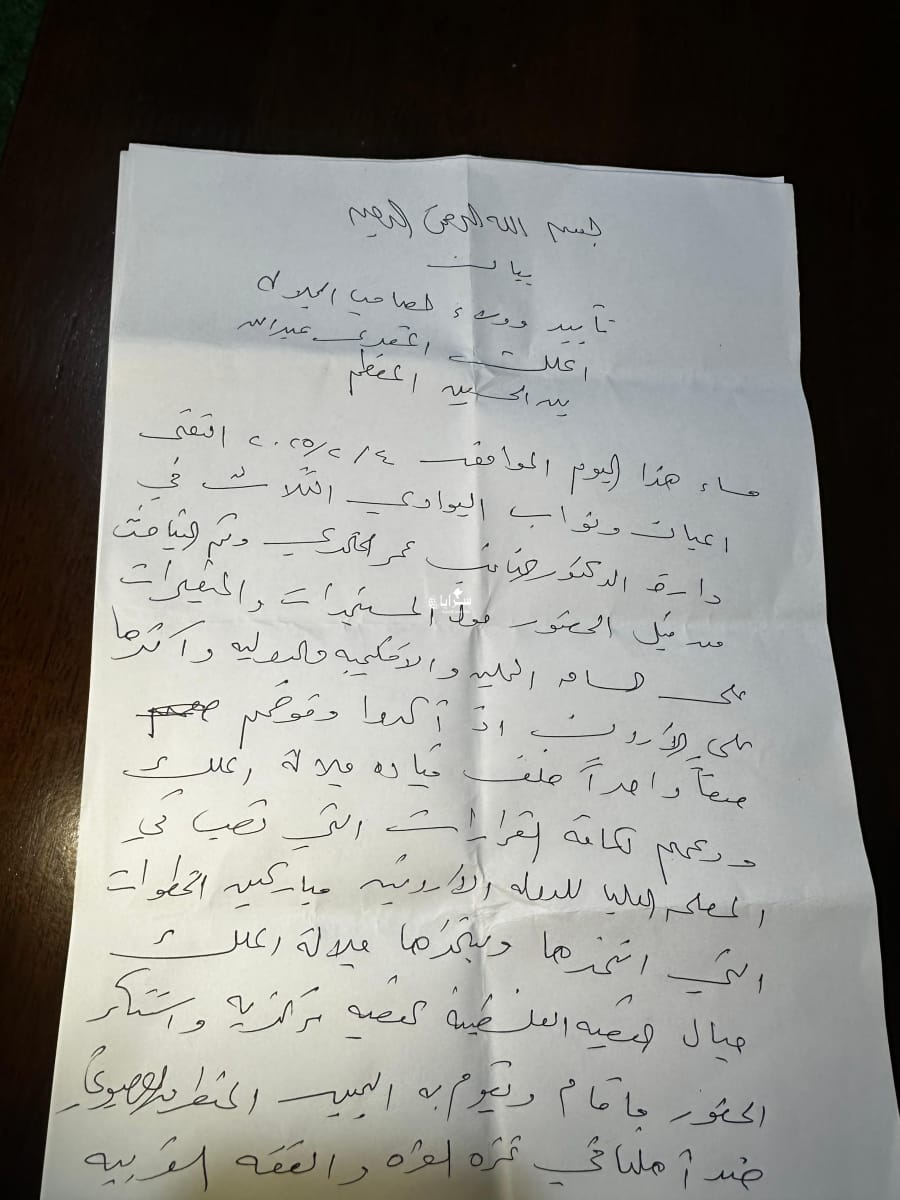 بسم الله الرحمن الرحيم
بيان
تأييد وولاء لصاحب الجلالة
الملك المفدى عبدالله
بن الحسين المعظم
مساء هذا اليوم الموافق ٢٠٢٥/٢/٤ التقى
اعيان ونواب البوادي الثلاث في
دارة الدكتور عمر الخالدي وتم التباحث
من قبل الحضور حول المستجدات والمتغيرات
على الساحه المحليه والاقليميه والدوليه واثرها
على الأردن اذ أكدوا وقوفهم
صفاً واحداً خلف قياده جلالة الملك
ودعمهم لكافة القرارات التي تصب في
المصلحه العليا للدوله الأردنيه مباركين الخطوات
التي اتخذها ويتخذها جلالة الملك
حيال القضيه الفلسطينيه كقضيه مركزيه واستنكر
الحضور ما قام ويقوم به المتطرف الصهيوني
ضد أهلنا في غزه والضفه الغربيه
سرايا